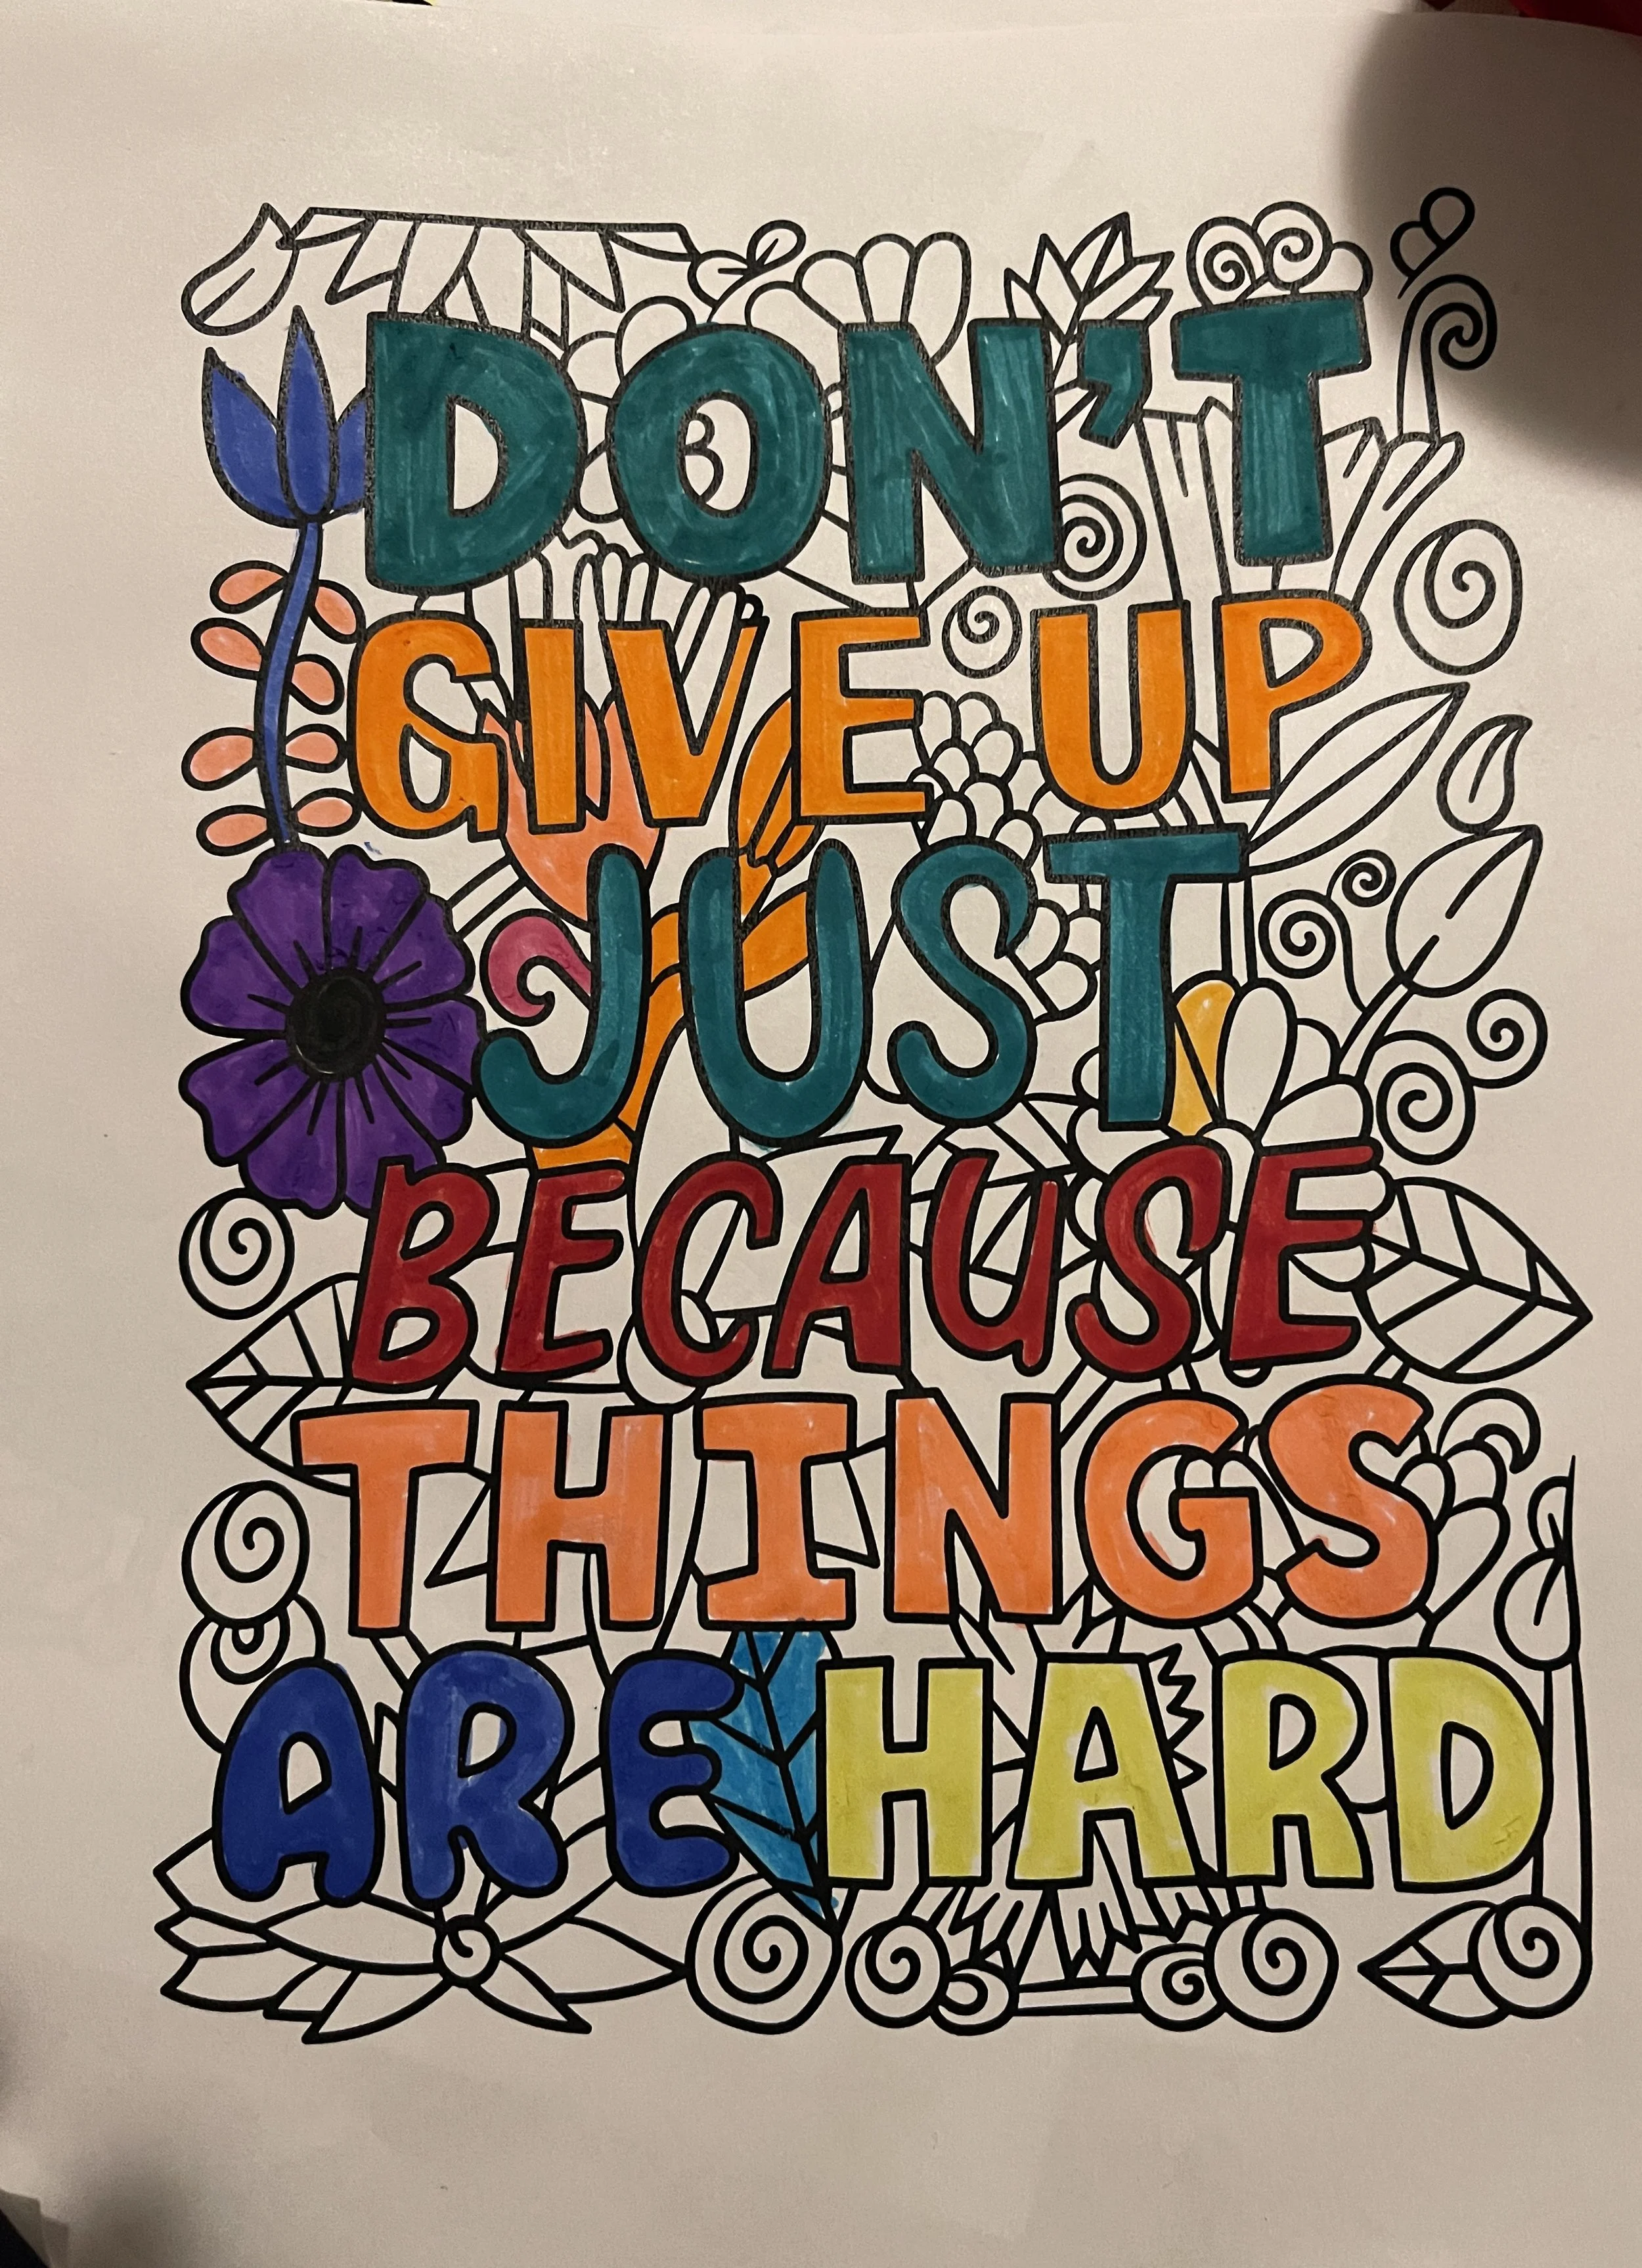 DON'T
GIVE UP
JUST
BECAUSE
THINGS
ARE HARD